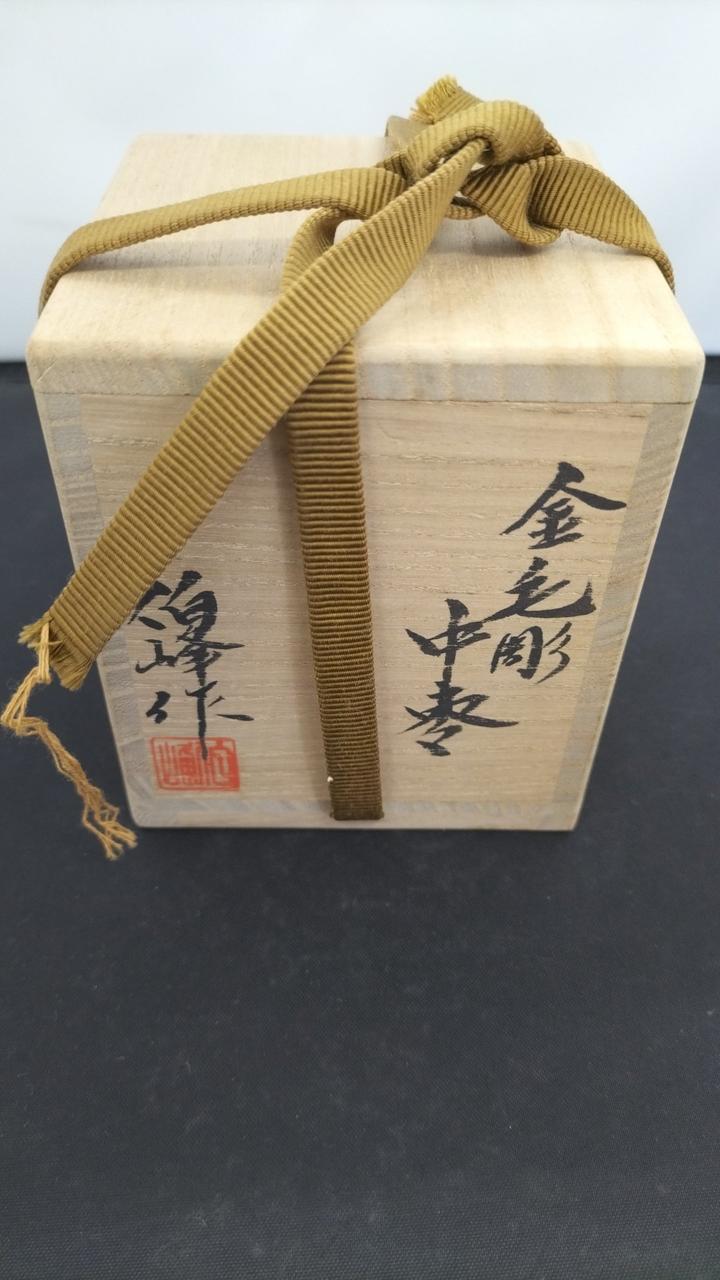 金毛彫
中棗
伯峰作